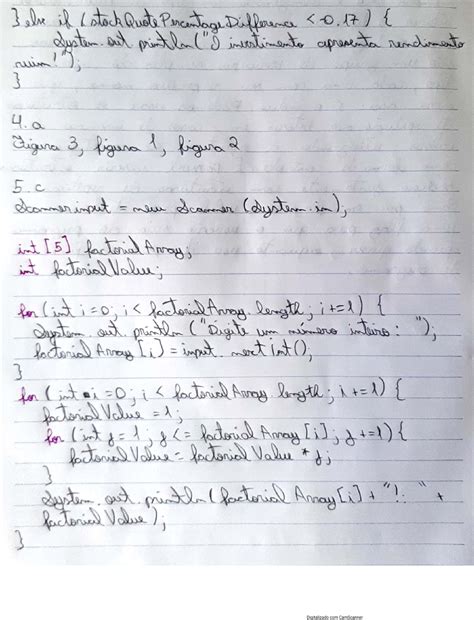 } else if (stockQuotePercentageDifference < -0.17) {
System.out.println("O investimento apresenta rendimento
ruim!");
}
4. a
Figura 3, figura 1, figura 2
5. c
Scanner input = new Scanner (System.in);
int [5] factorialArray;
int factorialValue;
for (int i = 0; i < factorialArray.length; i += 1) {
System.out.println ("Digite um número inteiro: ");
factorialArray [i] = input.nextInt();
}
for (int i = 0; i < factorialArray.length; i += 1) {
factorialValue = 1;
for (int j = 1; j <= factorialArray [i]; j += 1) {
factorialValue = factorialValue * j;
}
System.out.println (factorialArray [i] + "!: " +
factorialValue);
}
Digitalizado com CamScanner